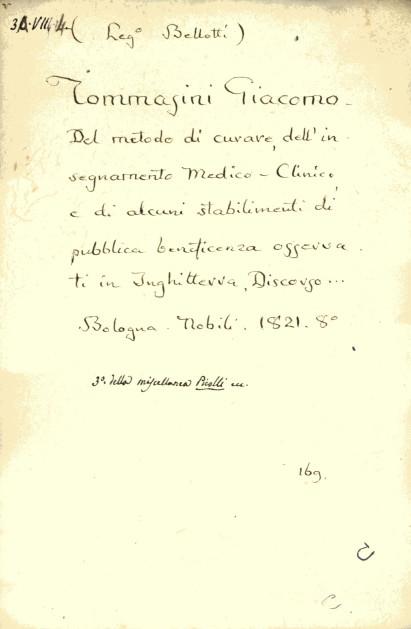 3A.VIII.4. (Leg° Bellotti)
Tommasini Giacomo -
Del metodo di curare, dell' in
segnamento Medico - Clinico,
e di alcuni stabilimenti di
pubblica beneficenza osserva
ti in Inghilterra, Discorso ...
Bologna. Nobili. 1821. 8°
3°. della miscellanea Picolli ecc.
169.